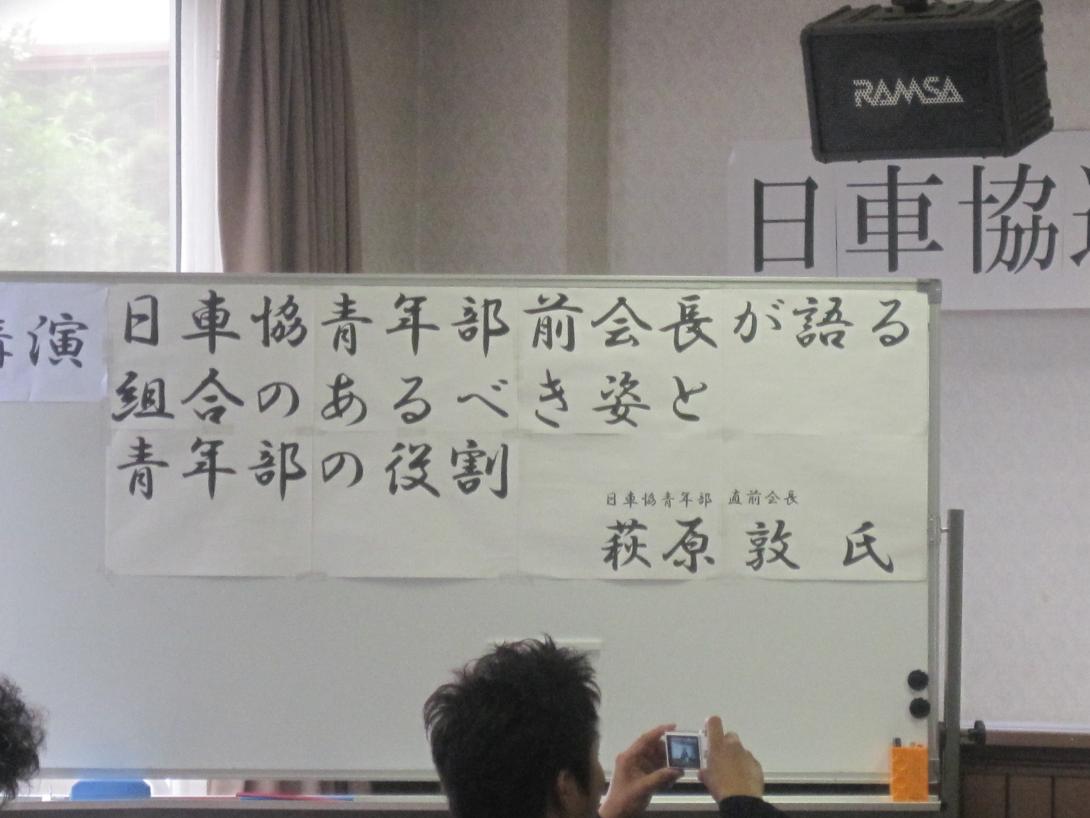 RAMSA
日車協
講演
日車協青年部前会長が語る
組合のあるべき姿と
青年部の役割
日車協青年部 直前会長
萩原 敦 氏